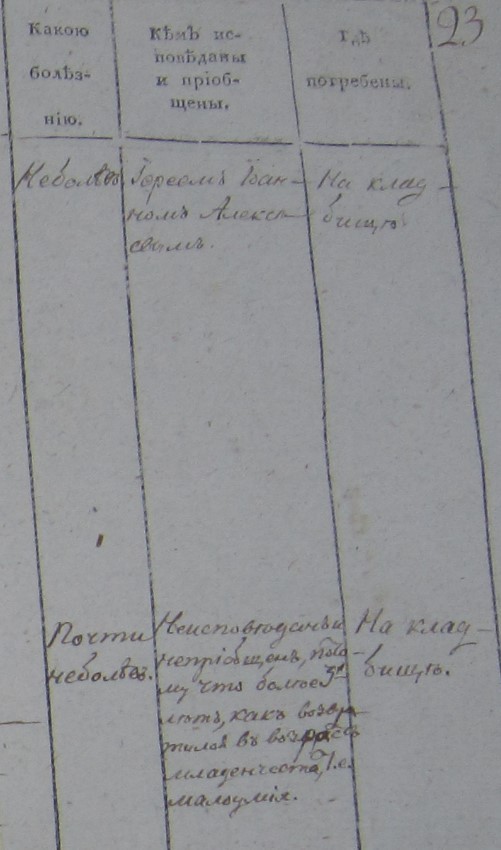 23
Какою
болѣз-
нію.
Кѣмъ ис-
повѣданы
и пріоб-
щены.
Гдѣ
погребены.
Неболѣвъ.
Іереемъ Іоан-
номъ Алексѣ-
евымъ.
На клад-
бищѣ
Почти
неболѣвъ.
Неисповѣданъ и
непріобщенъ, пото-
му что болѣе 3хъ
лѣтъ, какъ возвра-
тился въ возрастъ
младенчества, т.е.
малоумія.
На клад-
бищѣ.